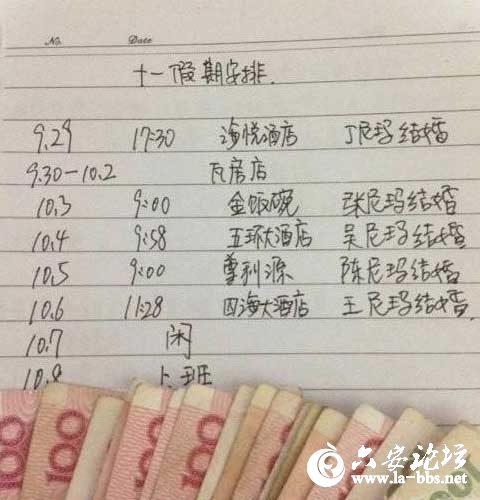 No. Date
十一假期安排.
9.29 17:30 海悦酒店 丁尼玛结婚
9.30-10.2 瓦房店
10.3 9:00 金饭碗 张尼玛结婚
10.4 9:58 五环大酒店 吴尼玛结婚
10.5 9:00 尊利源 陈尼玛结婚
10.6 11:28 四海大酒店 王尼玛结婚
10.7 闲
10.8 上班
100 100 100 100 100
六安论坛
www.la-bbs.net